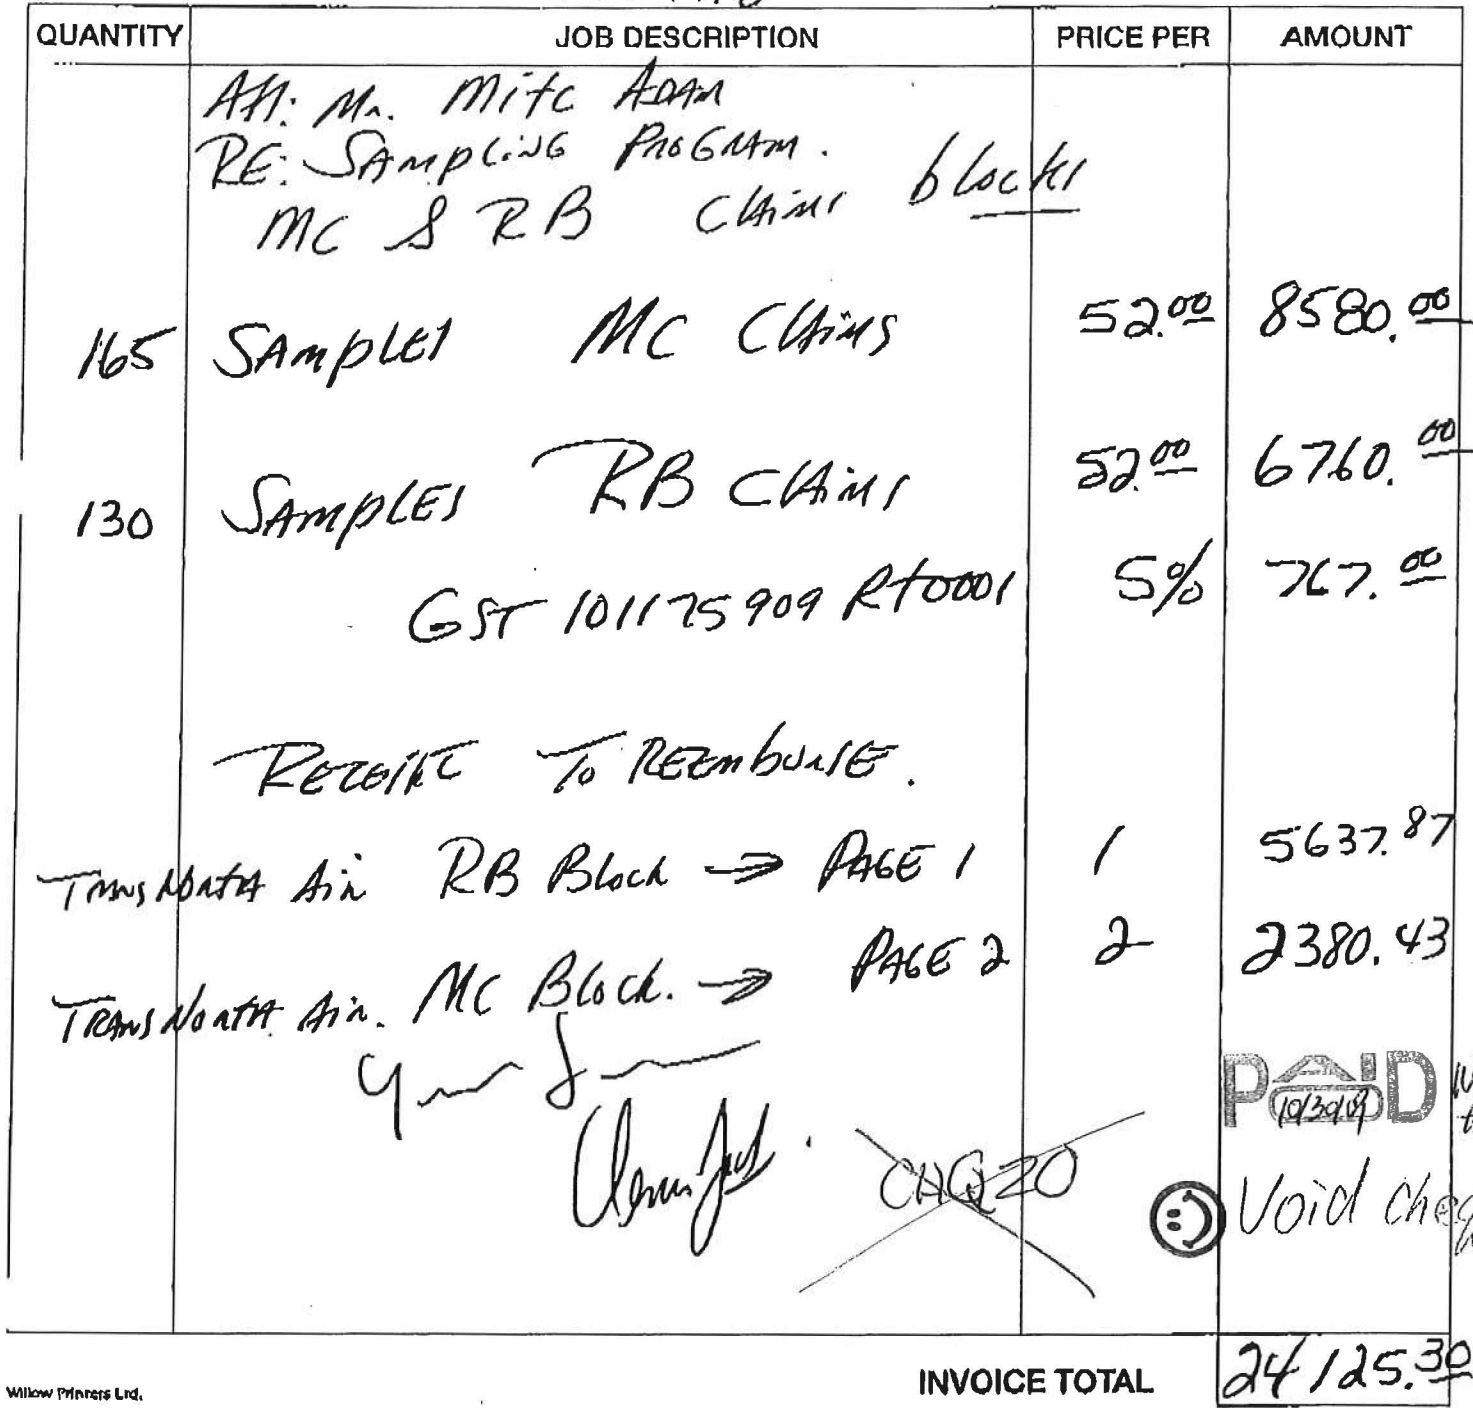 QUANTITY JOB DESCRIPTION PRICE PER AMOUNT
Att: Mr. Mitc ADAM
RE: SAMPLING PROGRAM.
MC & RB Claims blocks
165 SAMPLES MC Claims 52.00 8580.00
130 SAMPLES RB Claims 52.00 6760.00
GST 101175909 Rt0001 5% 767.00
To REEmbURSE.
TRANS NORTH Air RB Block → PAGE 1 1 5637.87
TRANS NORTH Air. MC Block. → PAGE 2 2 2380.43
PAID
10/30/09
CHQ 20
Void
INVOICE TOTAL 24125.30
Willow Printers Ltd.